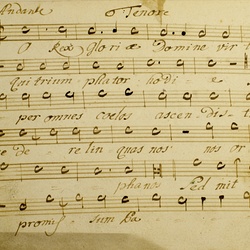 Andante
Tenore
O Rex gloriæ Domine vir t
Qui triumphator hodi e
per omnes coelos ascen dis t
e de re lin quas nos nos or
phanos Sed mit
promis sum Pa